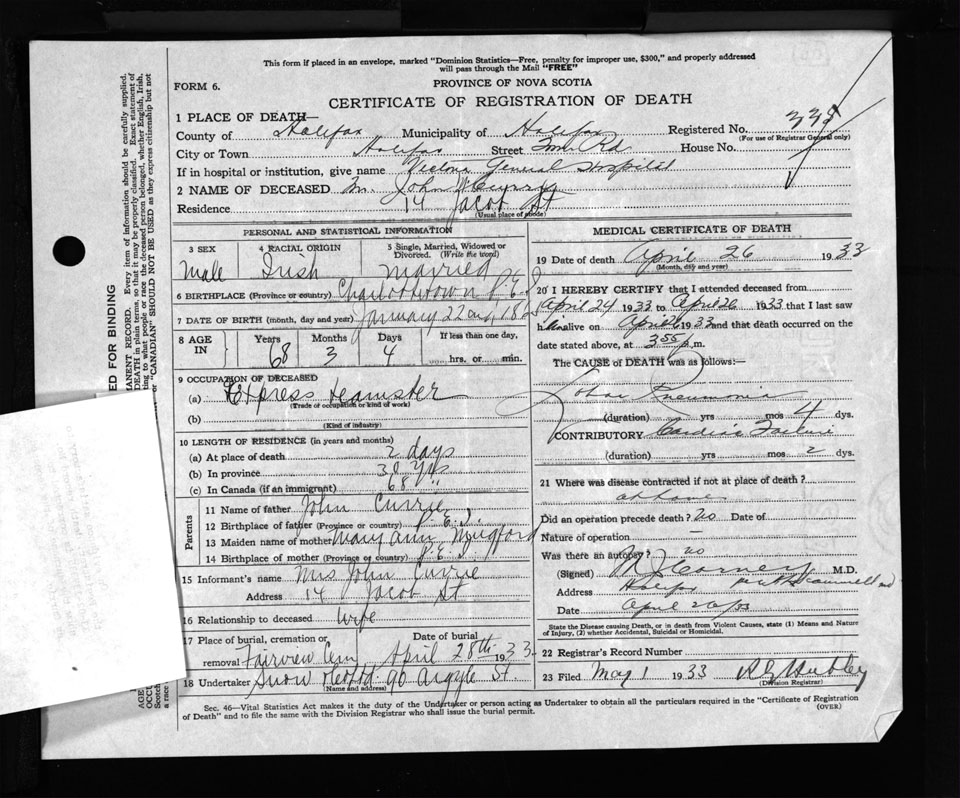 This form if placed in an envelope, marked "Dominion Statistics—Free, penalty for improper use, $300," and properly addressed
will pass through the Mail "FREE"
FORM 6.
PROVINCE OF NOVA SCOTIA
CERTIFICATE OF REGISTRATION OF DEATH
1 PLACE OF DEATH—
County of Halifax Municipality of Halifax Registered No. 335
(For use of Registrar General only)
City or Town Halifax Street Rd House No.
If in hospital or institution, give name Victoria General Hospital
2 NAME OF DECEASED John Currie
Residence 14 Jacob St
(Usual place of abode)
PERSONAL AND STATISTICAL INFORMATION
3 SEX 4 RACIAL ORIGIN 5 Single, Married, Widowed or Divorced. (Write the word)
Male Irish Married
6 BIRTHPLACE (Province or country) Charlottetown P.E.I
7 DATE OF BIRTH (month, day and year) January 22nd
8 AGE IN Years Months Days If less than one day,
68 3 4 hrs. or min.
9 OCCUPATION OF DECEASED
(a) Express teamster
(Trade or occupation or kind of work)
(b)
(Kind of industry)
10 LENGTH OF RESIDENCE (in years and months)
(a) At place of death 2 days
(b) In province Yrs
(c) In Canada (if an immigrant) 68 "
Parents
11 Name of father John Currie
12 Birthplace of father (Province or country) P.E.I.
13 Maiden name of mother Mary Ann
14 Birthplace of mother (Province or country) P.E.I
15 Informant's name Mrs John Currie
Address 14 Jacob St
16 Relationship to deceased wife
17 Place of burial, cremation or removal Fairview Cem Date of burial April 28th 1933
18 Undertaker Snow 90 Argyle St.
(Name and address)
MEDICAL CERTIFICATE OF DEATH
19 Date of death April 26 1933
(Month, day and year)
20 I HEREBY CERTIFY that I attended deceased from
April 24 1933 to April 26 1933 that I last saw
him alive on April 26 1933 and that death occurred on the
date stated above, at 3.55 p.m.
The CAUSE of DEATH was as follows:—
Lobar Pneumonia
(duration) yrs mos 4 dys.
CONTRIBUTORY Cardiac Failure
(duration) yrs mos 2 dys.
21 Where was disease contracted if not at place of death?
at home
Did an operation precede death? no Date of
Nature of operation —
Was there an autopsy? no
(Signed) M.D.
Address Halifax
Date April 26/33
State the Disease causing Death, or in death from Violent Causes, state (1) Means and Nature
of Injury, (2) whether Accidental, Suicidal or Homicidal.
22 Registrar's Record Number
23 Filed May 1 1933
(Division Registrar)
Sec. 46—Vital Statistics Act makes it the duty of the Undertaker or person acting as Undertaker to obtain all the particulars required in the "Certificate of Registration
of Death" and to file the same with the Division Registrar who shall issue the burial permit.
(OVER)
ED FOR BINDING
MANENT RECORD. Every item of information should be carefully supplied.
DEATH in plain terms, so that it may be properly classified. Exact statement of
ing to what people or race the deceased person belonged, whether English, Irish,
or "CANADIAN" SHOULD NOT BE USED as they express citizenship but not